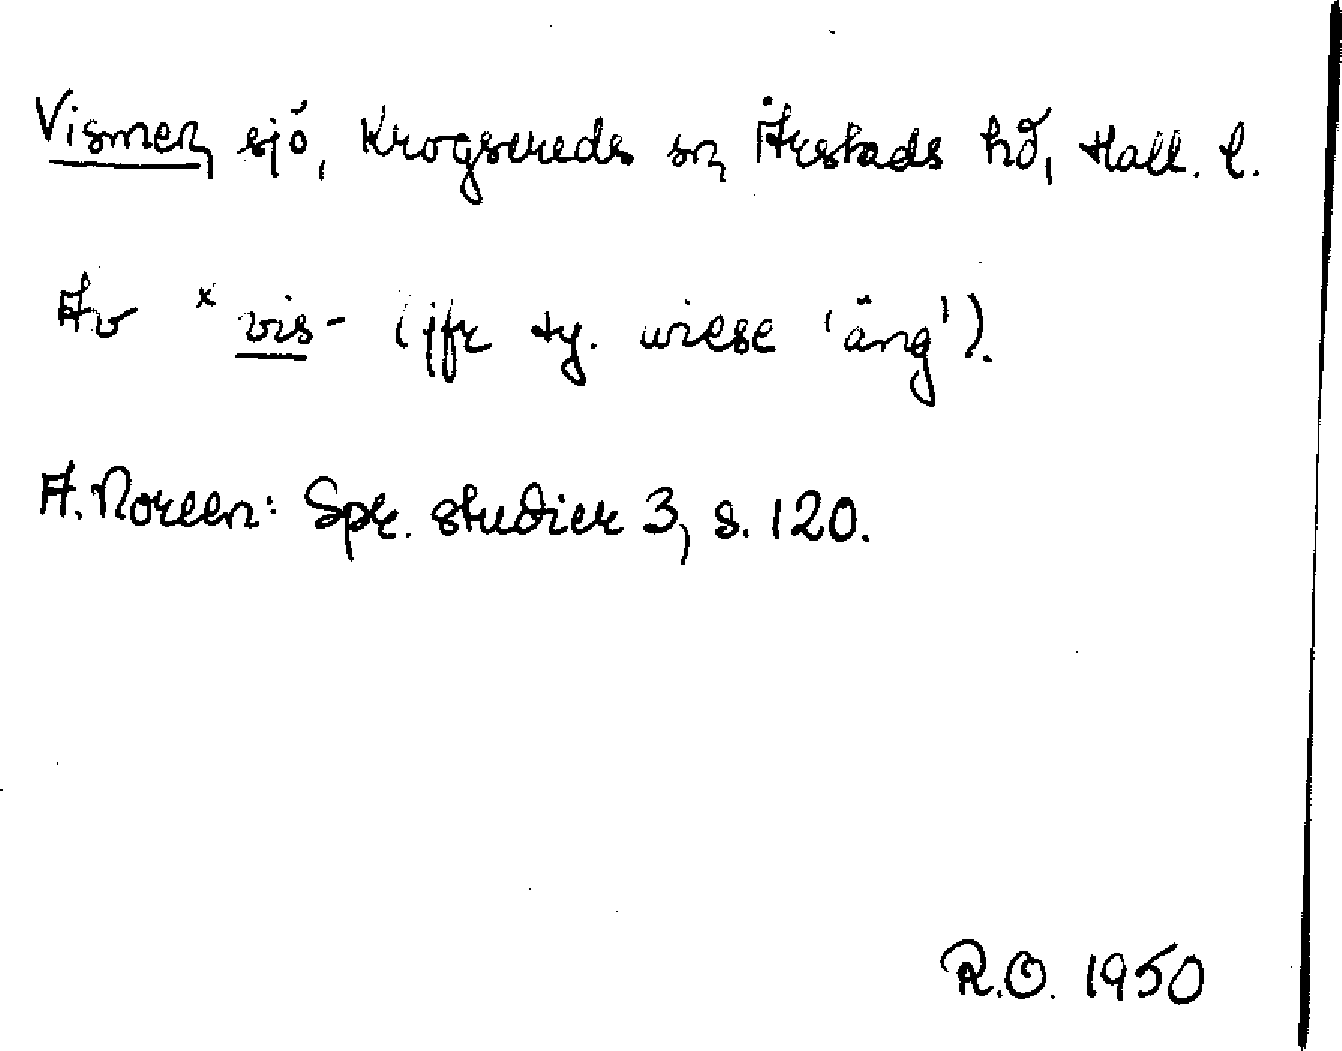 Vismen, sjö, Krogsereds sn, Årstads hd, Hall. l.
Av ˣvis- (jfr ty. wiese 'äng').
A. Noreen: Spr. studier 3, s. 120.
R.O. 1950